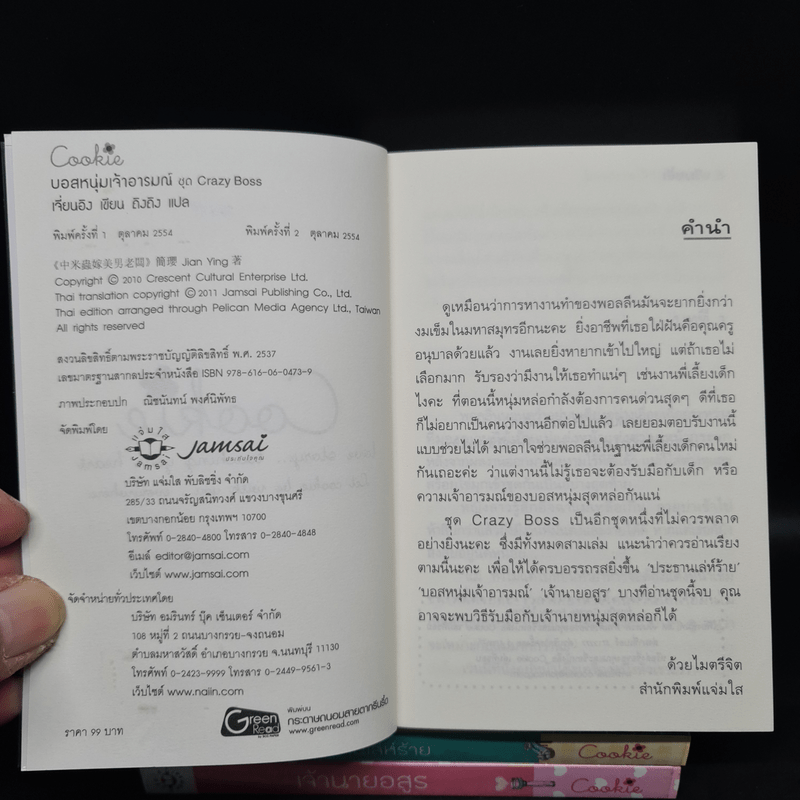 Cookie
บอสหนุ่มเจ้าอารมณ์ ชุด Crazy Boss
เจี่ยนอิง เขียน ถิงถิง แปล
พิมพ์ครั้งที่ 1 ตุลาคม 2554 พิมพ์ครั้งที่ 2 ตุลาคม 2554
《中米蟲嫁美男老闆》簡瓔 Jian Ying 著
Copyright © 2010 Crescent Cultural Enterprise Ltd.
Thai translation copyright © 2011 Jamsai Publishing Co., Ltd.
Thai edition arranged through Pelican Media Agency Ltd., Taiwan
All rights reserved
สงวนลิขสิทธิ์ตามพระราชบัญญัติลิขสิทธิ์ พ.ศ. 2537
เลขมาตรฐานสากลประจำหนังสือ ISBN 978-616-06-0473-9
ภาพประกอบปก ณิชนันทน์ พงศ์นิพัทธ
จัดพิมพ์โดย
แจ่มใส
JAMSAI
Jamsai
ประทับใจคุณ
บริษัท แจ่มใส พับลิชชิ่ง จำกัด
285/33 ถนนจรัญสนิทวงศ์ แขวงบางขุนศรี
เขตบางกอกน้อย กรุงเทพฯ 10700
โทรศัพท์ 0-2840-4800 โทรสาร 0-2840-4848
อีเมล์ editor@jamsai.com
เว็บไซต์ www.jamsai.com
จัดจำหน่ายทั่วประเทศโดย
บริษัท อมรินทร์ บุ๊ค เซ็นเตอร์ จำกัด
108 หมู่ที่ 2 ถนนบางกรวย-จงถนอม
ตำบลมหาสวัสดิ์ อำเภอบางกรวย จ.นนทบุรี 11130
โทรศัพท์ 0-2423-9999 โทรสาร 0-2449-9561-3
เว็บไซต์ www.naiin.com
ราคา 99 บาท
Green Read
พิมพ์บน
กระดาษถนอมสายตากรีนรี้ด
www.greenread.com
คำนำ
ดูเหมือนว่าการหางานทำของพอลลีนมันจะยากยิ่งกว่า
งมเข็มในมหาสมุทรอีกนะคะ ยิ่งอาชีพที่เธอใฝ่ฝันคือคุณครู
อนุบาลด้วยแล้ว งานเลยยิ่งหายากเข้าไปใหญ่ แต่ถ้าเธอไม่
เลือกมาก รับรองว่ามีงานให้เธอทำแน่ๆ เช่นงานพี่เลี้ยงเด็ก
ไงคะ ที่ตอนนี้หนุ่มหล่อกำลังต้องการคนด่วนสุดๆ ดีที่เธอ
ก็ไม่อยากเป็นคนว่างงานอีกต่อไปแล้ว เลยยอมตอบรับงานนี้
แบบช่วยไม่ได้ มาเอาใจช่วยพอลลีนในฐานะพี่เลี้ยงเด็กคนใหม่
กันเถอะค่ะ ว่าแต่งานนี้ไม่รู้เธอจะต้องรับมือกับเด็ก หรือ
ความเจ้าอารมณ์ของบอสหนุ่มสุดหล่อกันแน่
ชุด Crazy Boss เป็นอีกชุดหนึ่งที่ไม่ควรพลาด
อย่างยิ่งนะคะ ซึ่งมีทั้งหมดสามเล่ม แนะนำว่าควรอ่านเรียง
ตามนี้นะคะ เพื่อให้ได้ครบอรรถรสยิ่งขึ้น 'ประธานเล่ห์ร้าย'
'บอสหนุ่มเจ้าอารมณ์' 'เจ้านายอสูร' บางทีอ่านชุดนี้จบ คุณ
อาจจะพบวิธีรับมือกับเจ้านายหนุ่มสุดหล่อก็ได้
ด้วยไมตรีจิต
สำนักพิมพ์แจ่มใส
เล่ห์ร้าย Cookie
เจ้านายอสูร Cookie